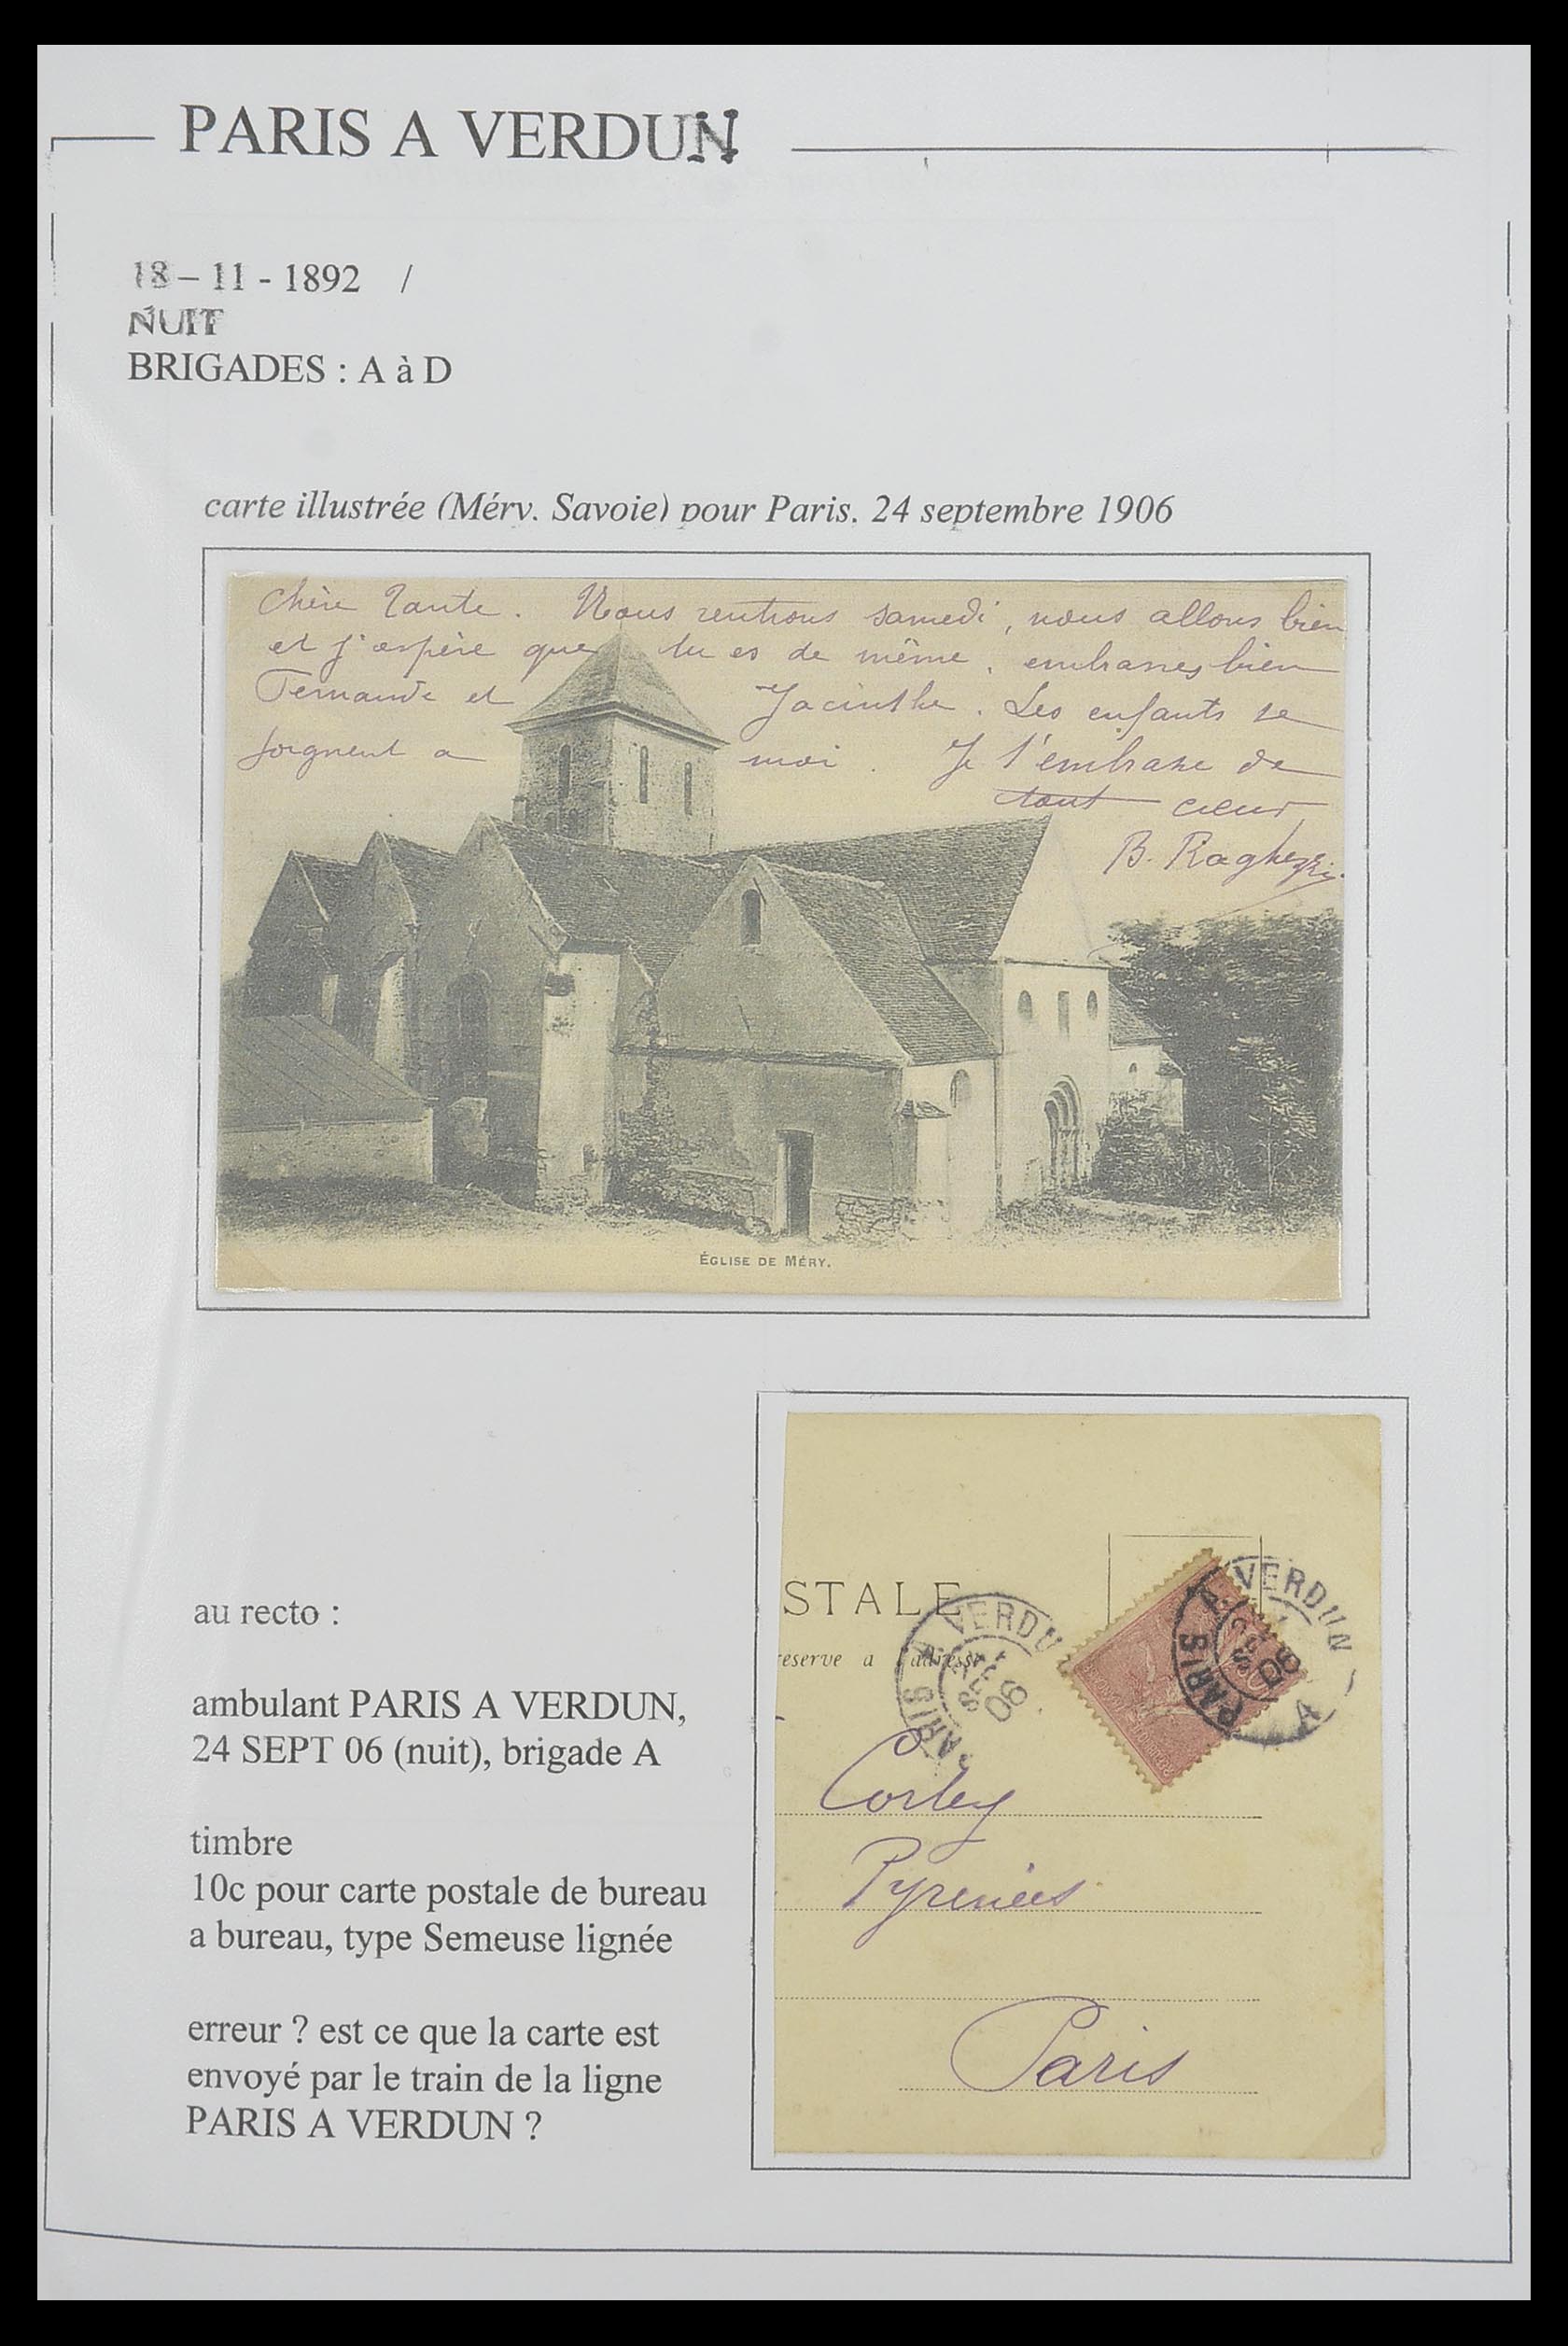 PARIS A VERDUN
18 – 11 - 1892 /
NUIT
BRIGADES : A à D
carte illustrée (Méry. Savoie) pour Paris. 24 septembre 1906
Chère Tante. Nous rentrons samedi, nous allons bien
et j'espère que tu es de même. embrasses bien
Fernande et Jacinthe. Les enfants se
joignent a moi. Je t'embrasse de
tout cœur
B.
ÉGLISE DE MÉRY.
au recto :
ambulant PARIS A VERDUN,
24 SEPT 06 (nuit), brigade A
timbre
10c pour carte postale de bureau
a bureau, type Semeuse lignée
erreur ? est ce que la carte est
envoyé par le train de la ligne
PARIS A VERDUN ?
STALE
eserve a l'adresse
ARIS A VERDU
SEPT
06
PARIS A VERDUN
06
A
Corbey
Pyrenées
Paris